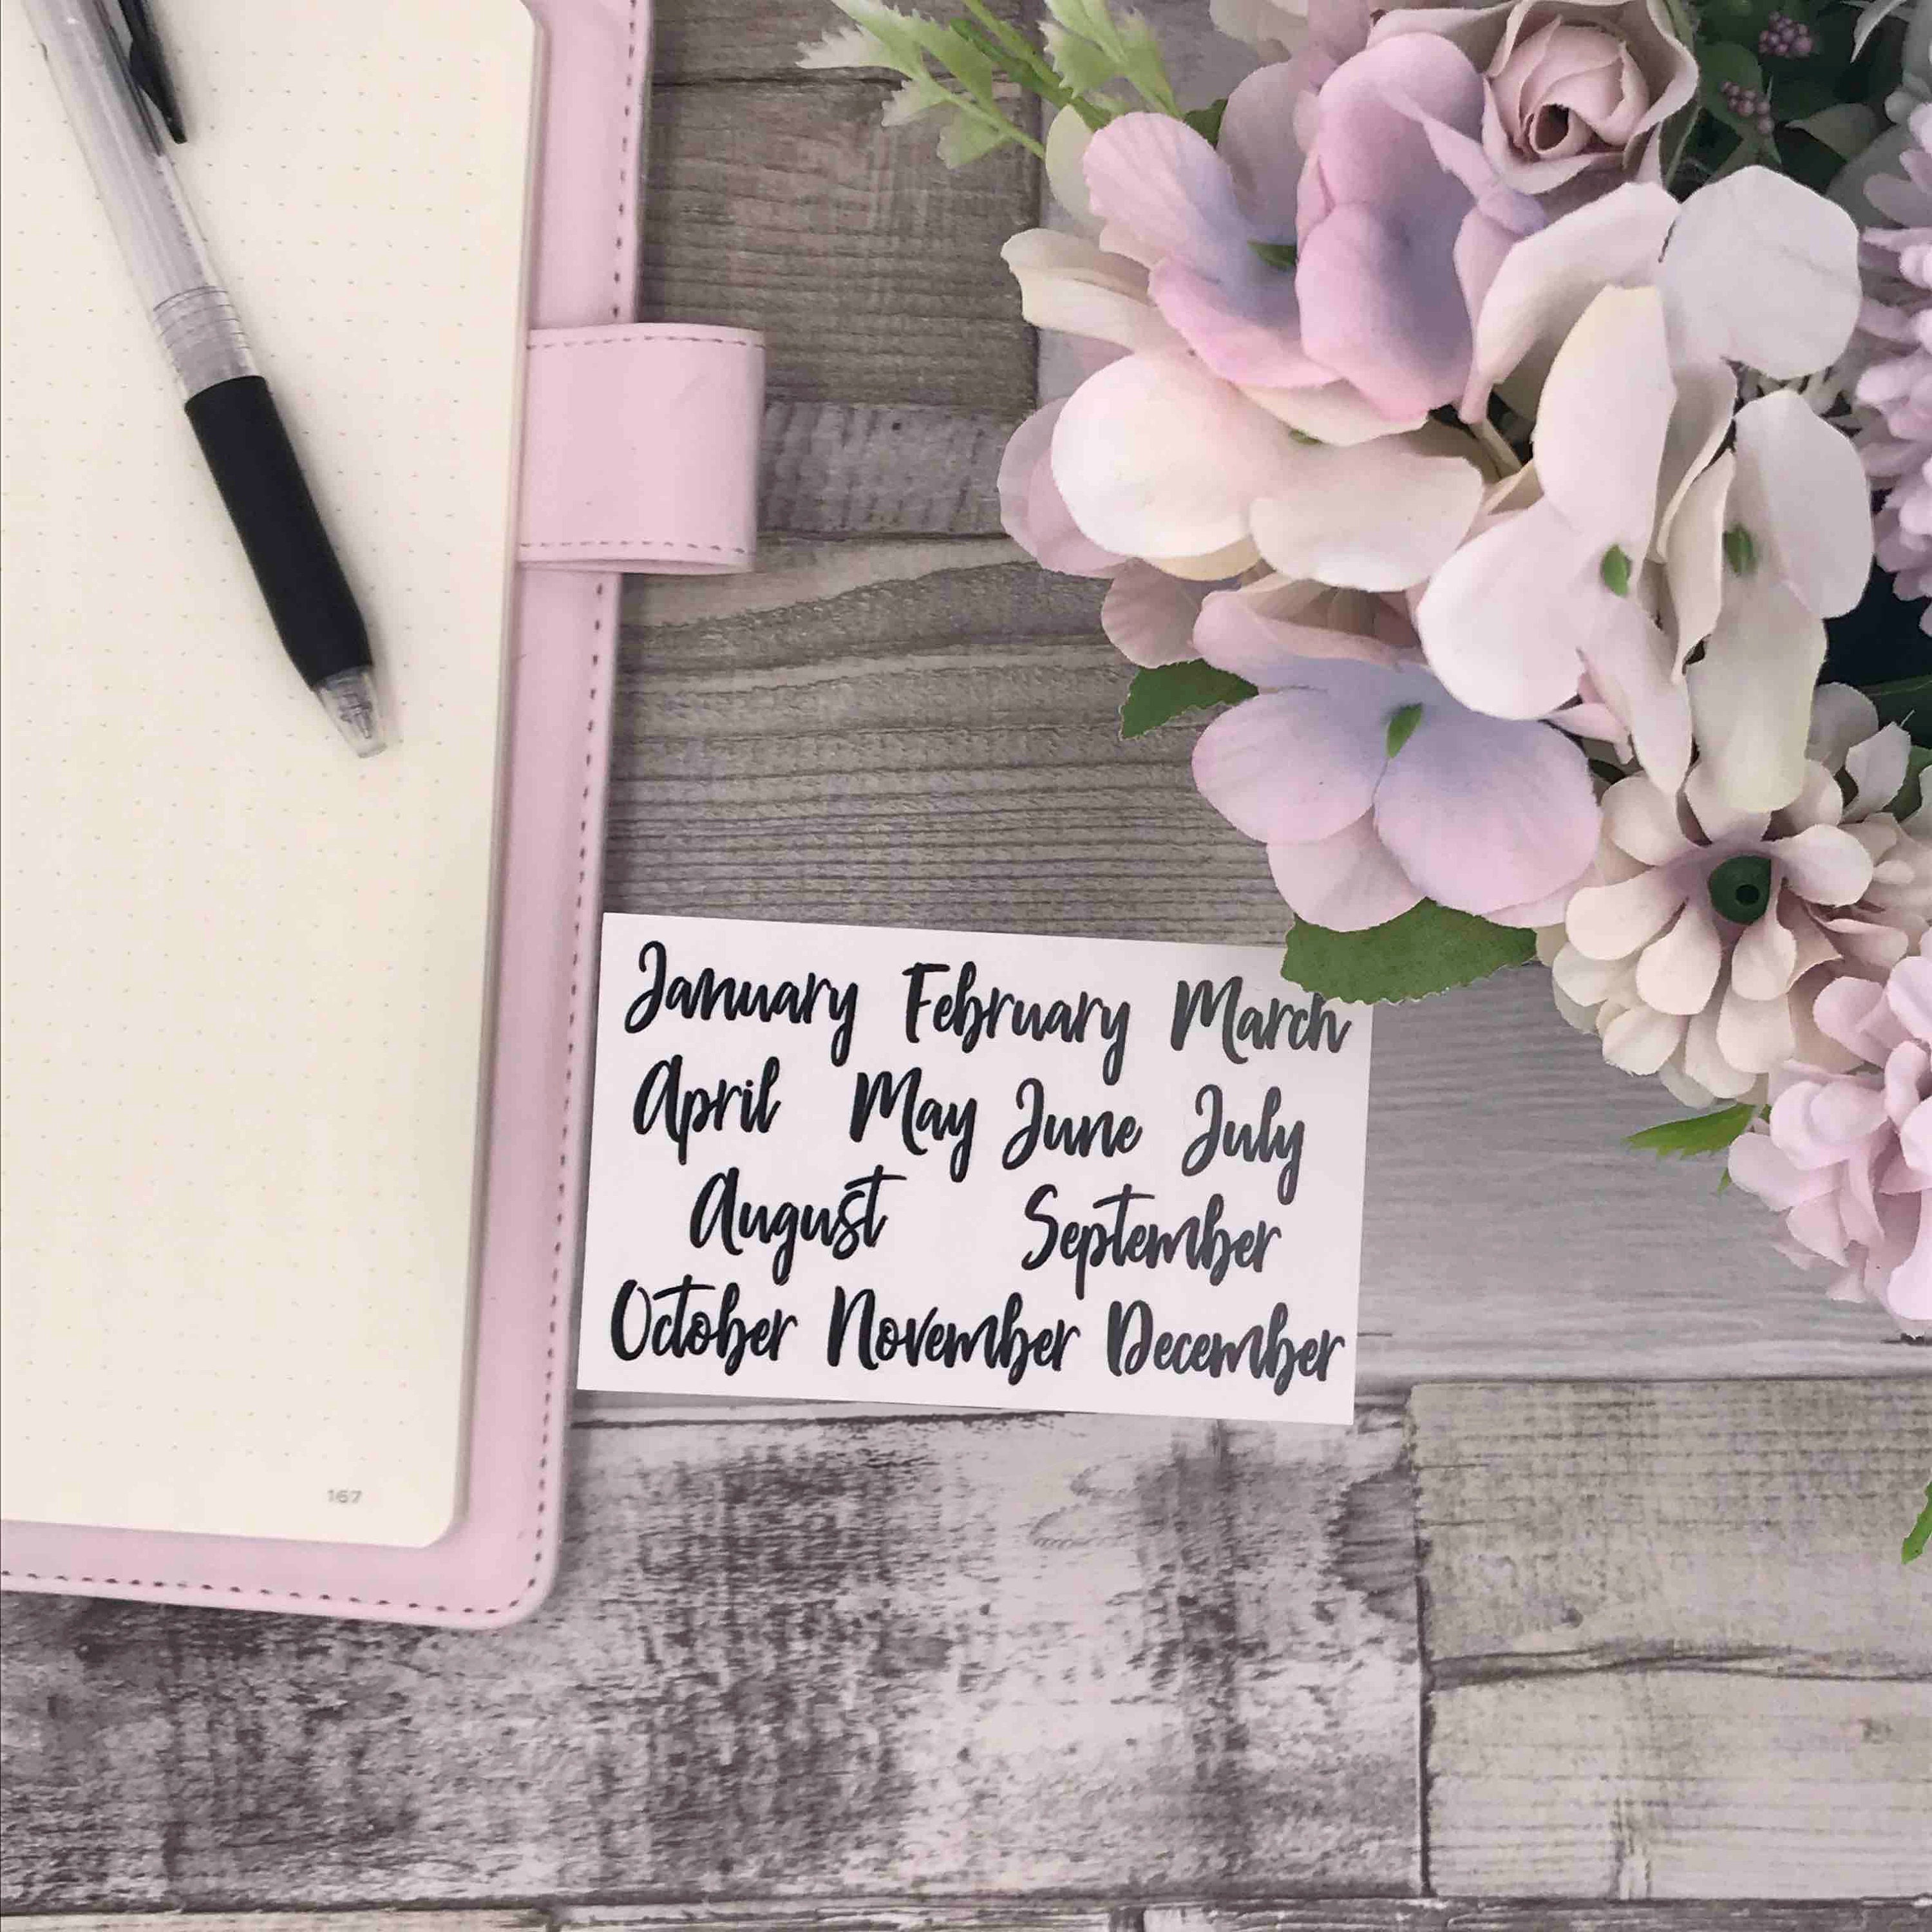 January February March
April May June July
August September
October November December
167